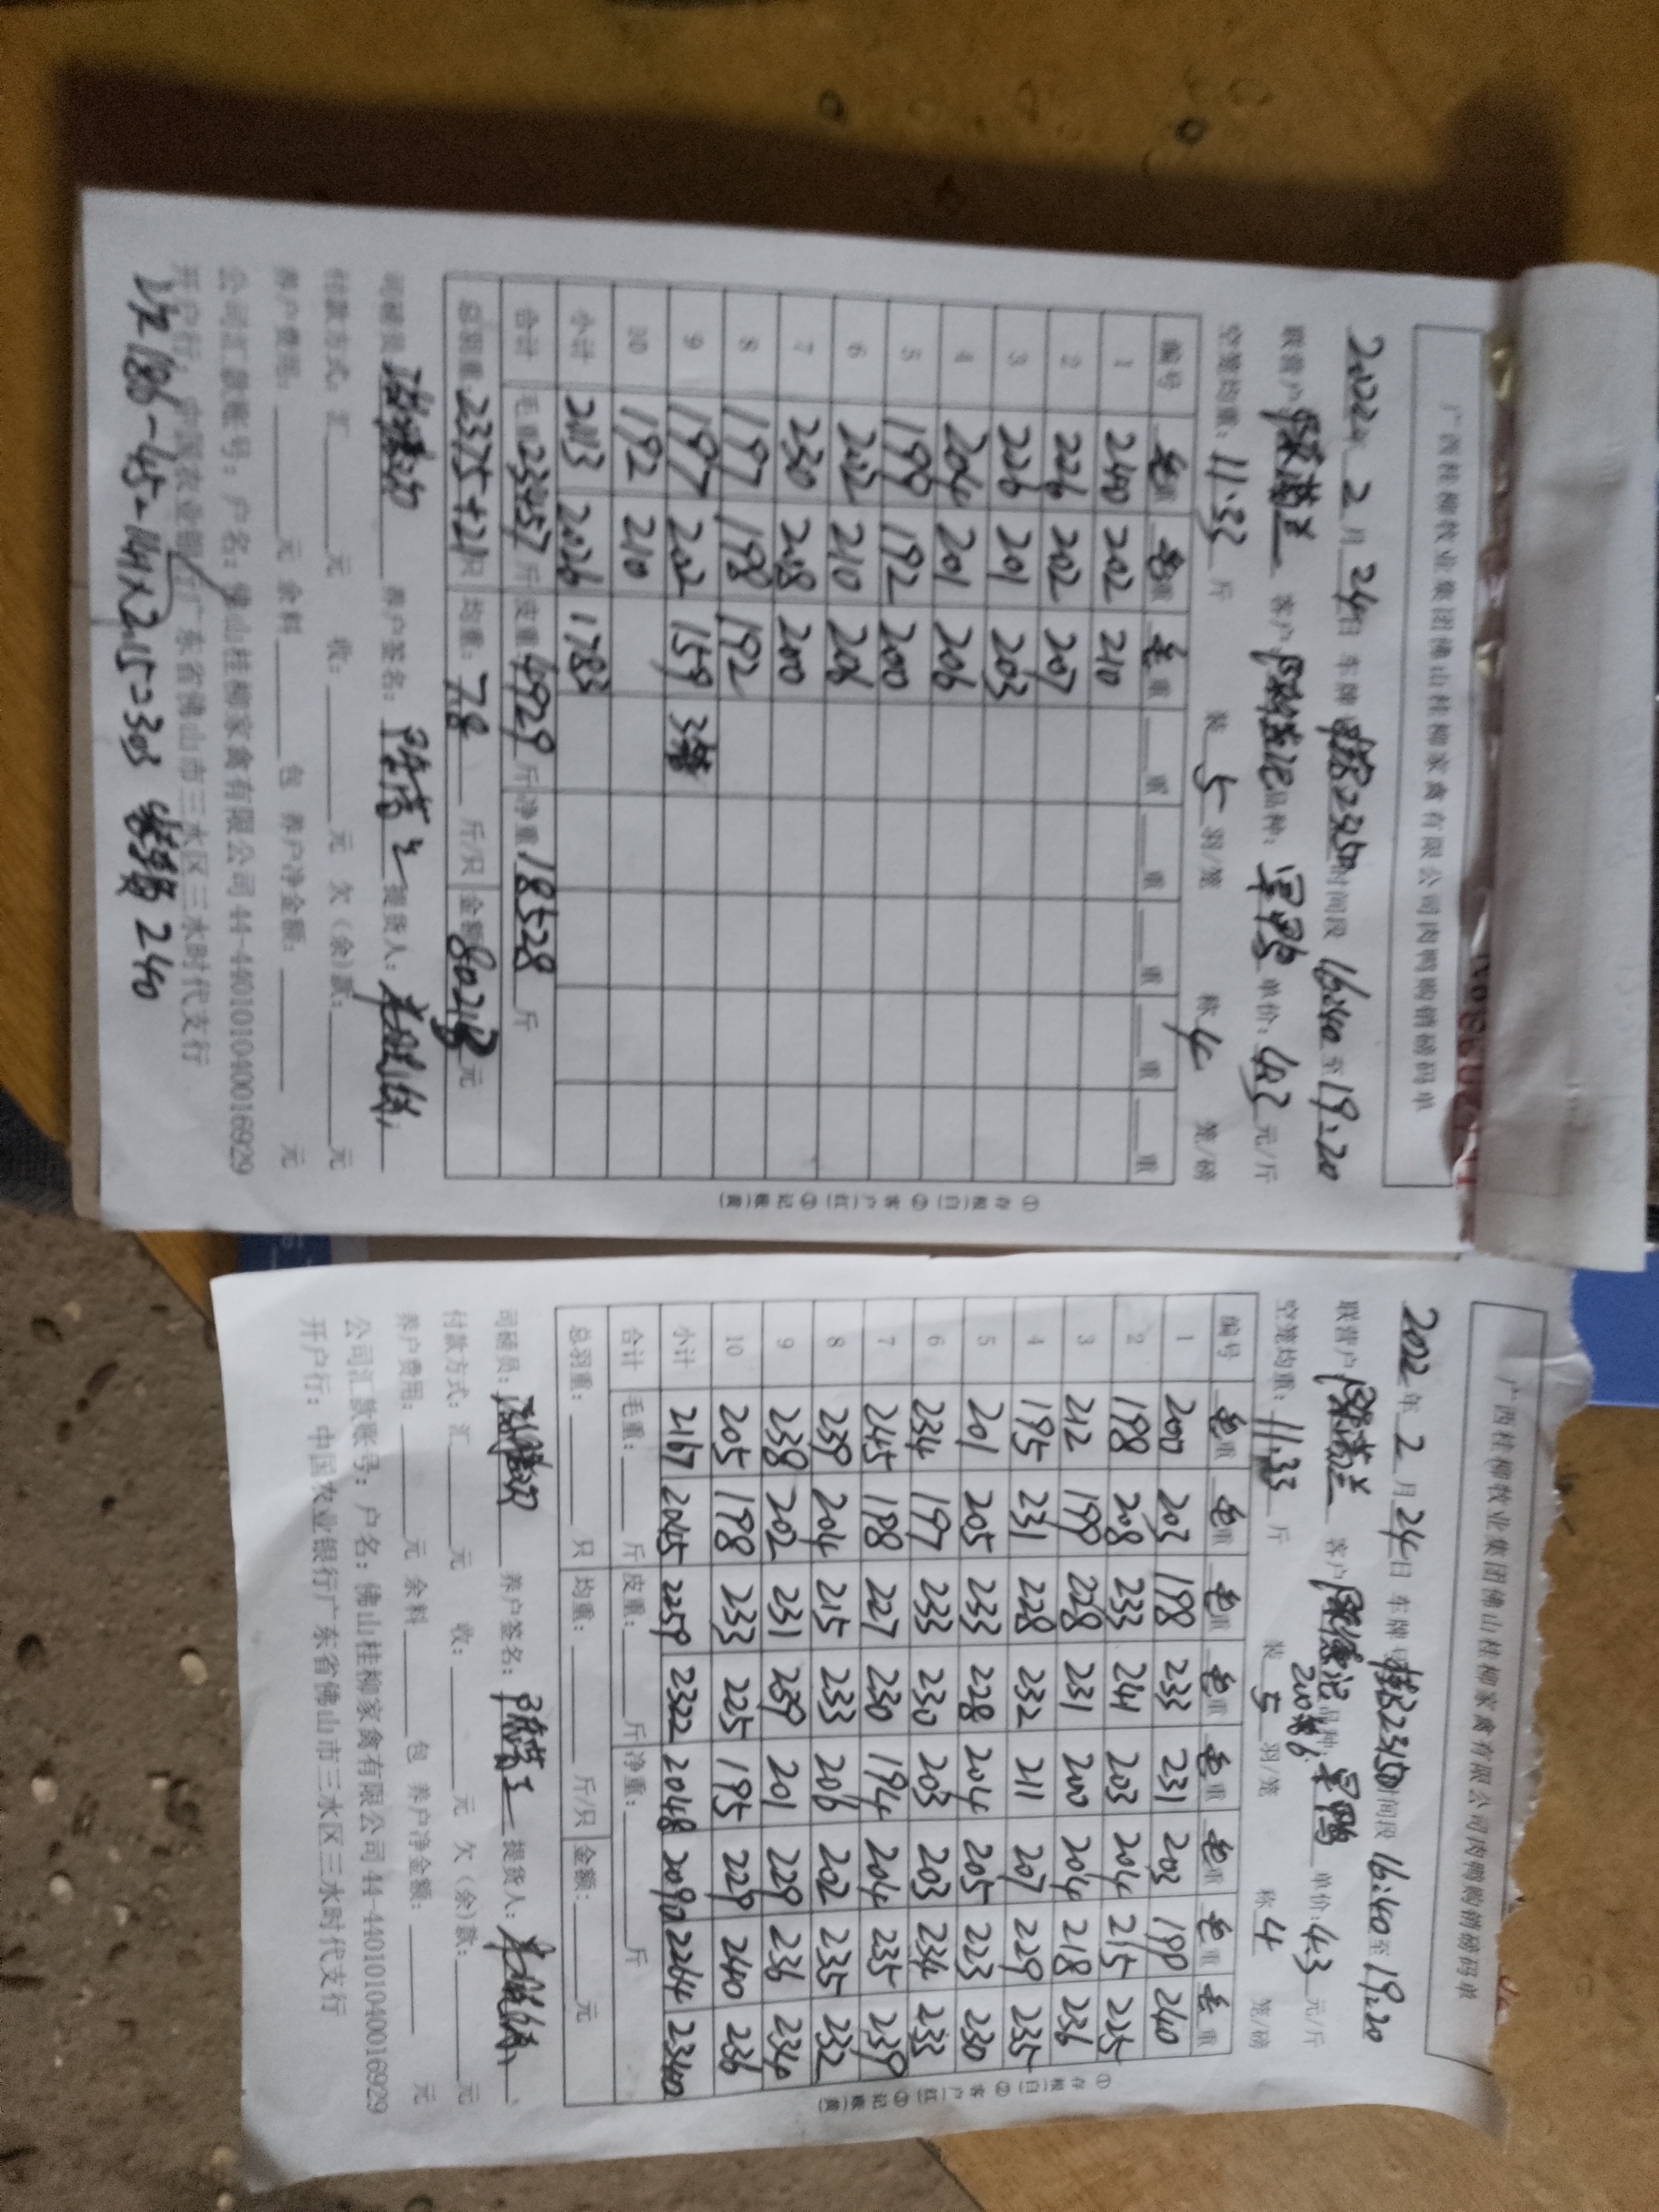 广西桂柳牧业集团佛山桂柳家禽有限公司肉鸭购销磅码单
2022年 2 月 24日 车牌 2325 时间段 16:40 至 19:20
联营户: 客户: 品种: 单价: 4.33 元/斤
空笼均重: 11.33 斤 装 5 羽/笼 称 4 笼/磅
编号 毛重 毛重 毛重 重 重 重 重 重
1 240 202 210
2 226 202 207
3 226 201 203
4 204 201 206
5 199 192 200
6 202 210 206
7 230 208 200
8 197 198 192
9 197 202 159 3笼
10 192 210
小计 2113 2026 1783
合计 毛重: 23457 斤 皮重: 4929 斤 净重: 18528 斤
总羽重: 2375+21只 均重: 7.8 斤/只 金额: 元
司磅员: 养户签名: 提货人:
付款方式: 汇 元 收: 元 欠(余)款: 元
养户费用: 元 余料 包 养户净金额: 元
公司汇款账号: 户名: 佛山桂柳家禽有限公司 44-440101040016929
开户行: 中国农业银行广东省佛山市三水区三水时代支行
186-45=141×2.15=303 240
①存根(白) ②客户(红) ③记账(黄)
广西桂柳牧业集团佛山桂柳家禽有限公司肉鸭购销磅码单
2022 年 2 月 24日 车牌 时间段 16:40 至 19:20
联营户: 客户: 品种: 单价: 4.33 元/斤
空笼均重: 11.33 斤 装 5 羽/笼 称 4 笼/磅
编号 毛重 毛重 毛重 毛重 毛重 毛重 毛重 毛重
1 200 203 198 233 231 203 190 240
2 198 208 233 241 203 204 215 225
3 212 199 228 231 200 204 218 236
4 195 231 228 232 211 207 229 235
5 201 205 233 228 204 205 223 230
6 234 197 233 230 203 203 234 233
7 245 198 227 230 194 204 235 239
8 239 204 215 233 206 202 235 232
9 238 202 231 239 201 229 236 234
10 205 198 233 225 195 229 240 236
小计 2167 2045 2259 2322 2048 2090 2264 2340
合计 毛重: 斤 皮重: 斤 净重: 斤
总羽重: 只 均重: 斤/只 金额: 元
司磅员: 养户签名: 提货人:
付款方式: 汇 元 收: 元 欠(余)款: 元
养户费用: 元 余料 包 养户净金额: 元
公司汇款账号: 户名: 佛山桂柳家禽有限公司 44-440101040016929
开户行: 中国农业银行广东省佛山市三水区三水时代支行
①存根(白) ②客户(红) ③记账(黄)